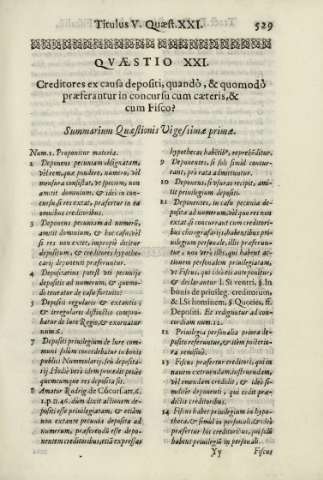 Titulus V. Quæst. XXI. 529
QVÆSTIO XXI.
Creditores ex causa depositi, quandò, & quomodò
præferantur in concursu cum cæteris, &
cum Fisco?
Summarium Quæstionis Vigesimæ primæ.
Num. 1. Proponitur materia.
2 Deponens pecuniam obsignatam,
vel rem, quæ pondere, numero, vel
mensura consistat, ve sponsem, non
amittit dominium, & ideo in con-
cursu si res extat, præfertur in ea
omnibus creditoribus.
3 Deponens pecuniam ad numerũ,
amittit dominium, & hoc casu, vel
si res non extet, impropriè dicitur
depositum, & creditores hypothe-
carij deponenti præferuntur.
4 Duplicatim potest vti pecunia
deposita ad numerum, & quomo-
do teneatur de casu fortuito:
5 Depositi regularis & extantis
& irregularis distinctio compro-
batur de Iure Regio, & exornatur
num. 6.
7 Depositi privilegium de Iure com-
muni solum concedebatur in bonis
publici Nummularij, seu deposita-
rij. Hodiè verò idem procedit penès
quemcumque res deposita sit.
8 Amator Rodrig. de Concurs. art. 4.
1. p. n. 46. dùm dixit actionem de-
positi esse privilegiatam, & etiam
non extante pecunia deposita ad
numerum, præferendũ esse depo-
nentem creditoribus, etiã expressas
hypothecas habẽtib9, reprehẽditur.
9 Deponentes, si sub simul concur-
rant, prò rata admittuntur.
10 Deponens, si vsuras recipit, amit-
tit privilegium depositi.
11 Deponentes, in casu pecuniæ de-
positæ ad numerũ, vel quo res non
extat si concurrant cum creditori-
bus chirografarijs, habentibus pri-
vilegium personale, illis præferun-
tur, non verò illis, qui habent ac-
tionem personalem privilegiatam,
vt Fiscus, qui ideo eis anteponitur,
& declarantur l. Si ventri, §. In
bonis de privileg. creditorum,
& l. Si hominem, §. Quoties, ff.
Depositi. Et rediguntur ad con-
cordiam num. 12.
12 Privilegia personalia prima de-
positi referuntur, & item posterio-
ra remissivè.
13 Fiscus præfertur creditori, qui in
navem extruendam, instruendam,
vel emendam credidit, & ideò si-
militèr deponenti, qui credit præ-
dictis creditoribus.
14 Fiscus habet privilegium in hypo-
theca, & simùl in personali, & ideò
præfertur his creditoribus, qui solũ
habent privilegiũ in personali.
Xy Fiscus